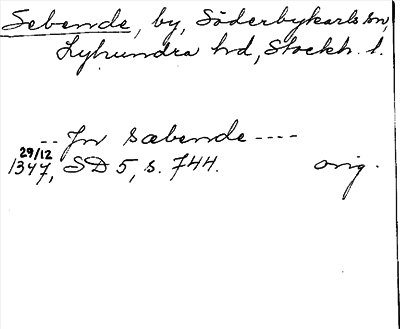 Sebende, by, Söderbykarls sn,
Lyhundra hd, Stockh. l.
-- Jn sæbende ----
29/12
1347, SD 5, s. 744. orig.